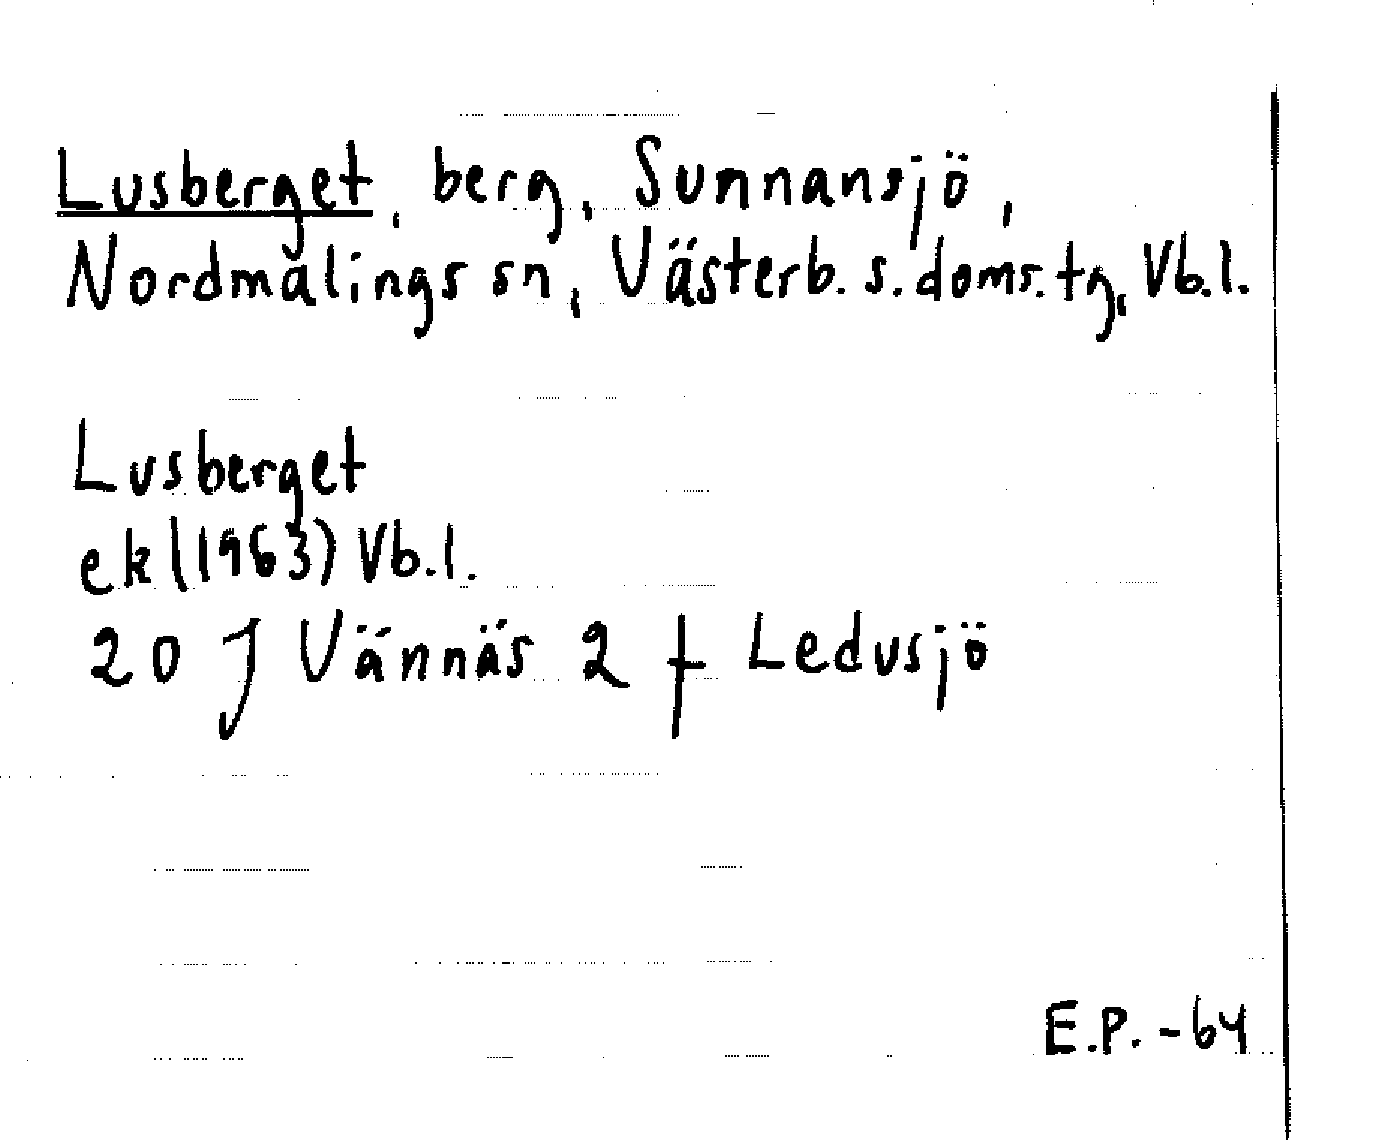 Lusberget, berg, Sunnansjö,
Nordmalings sn, Västerb. s. doms. tg, Vb.l.
Lusberget
ek (1963) Vb.l.
20 J Vännäs 2 f Ledusjö
E.P. -64